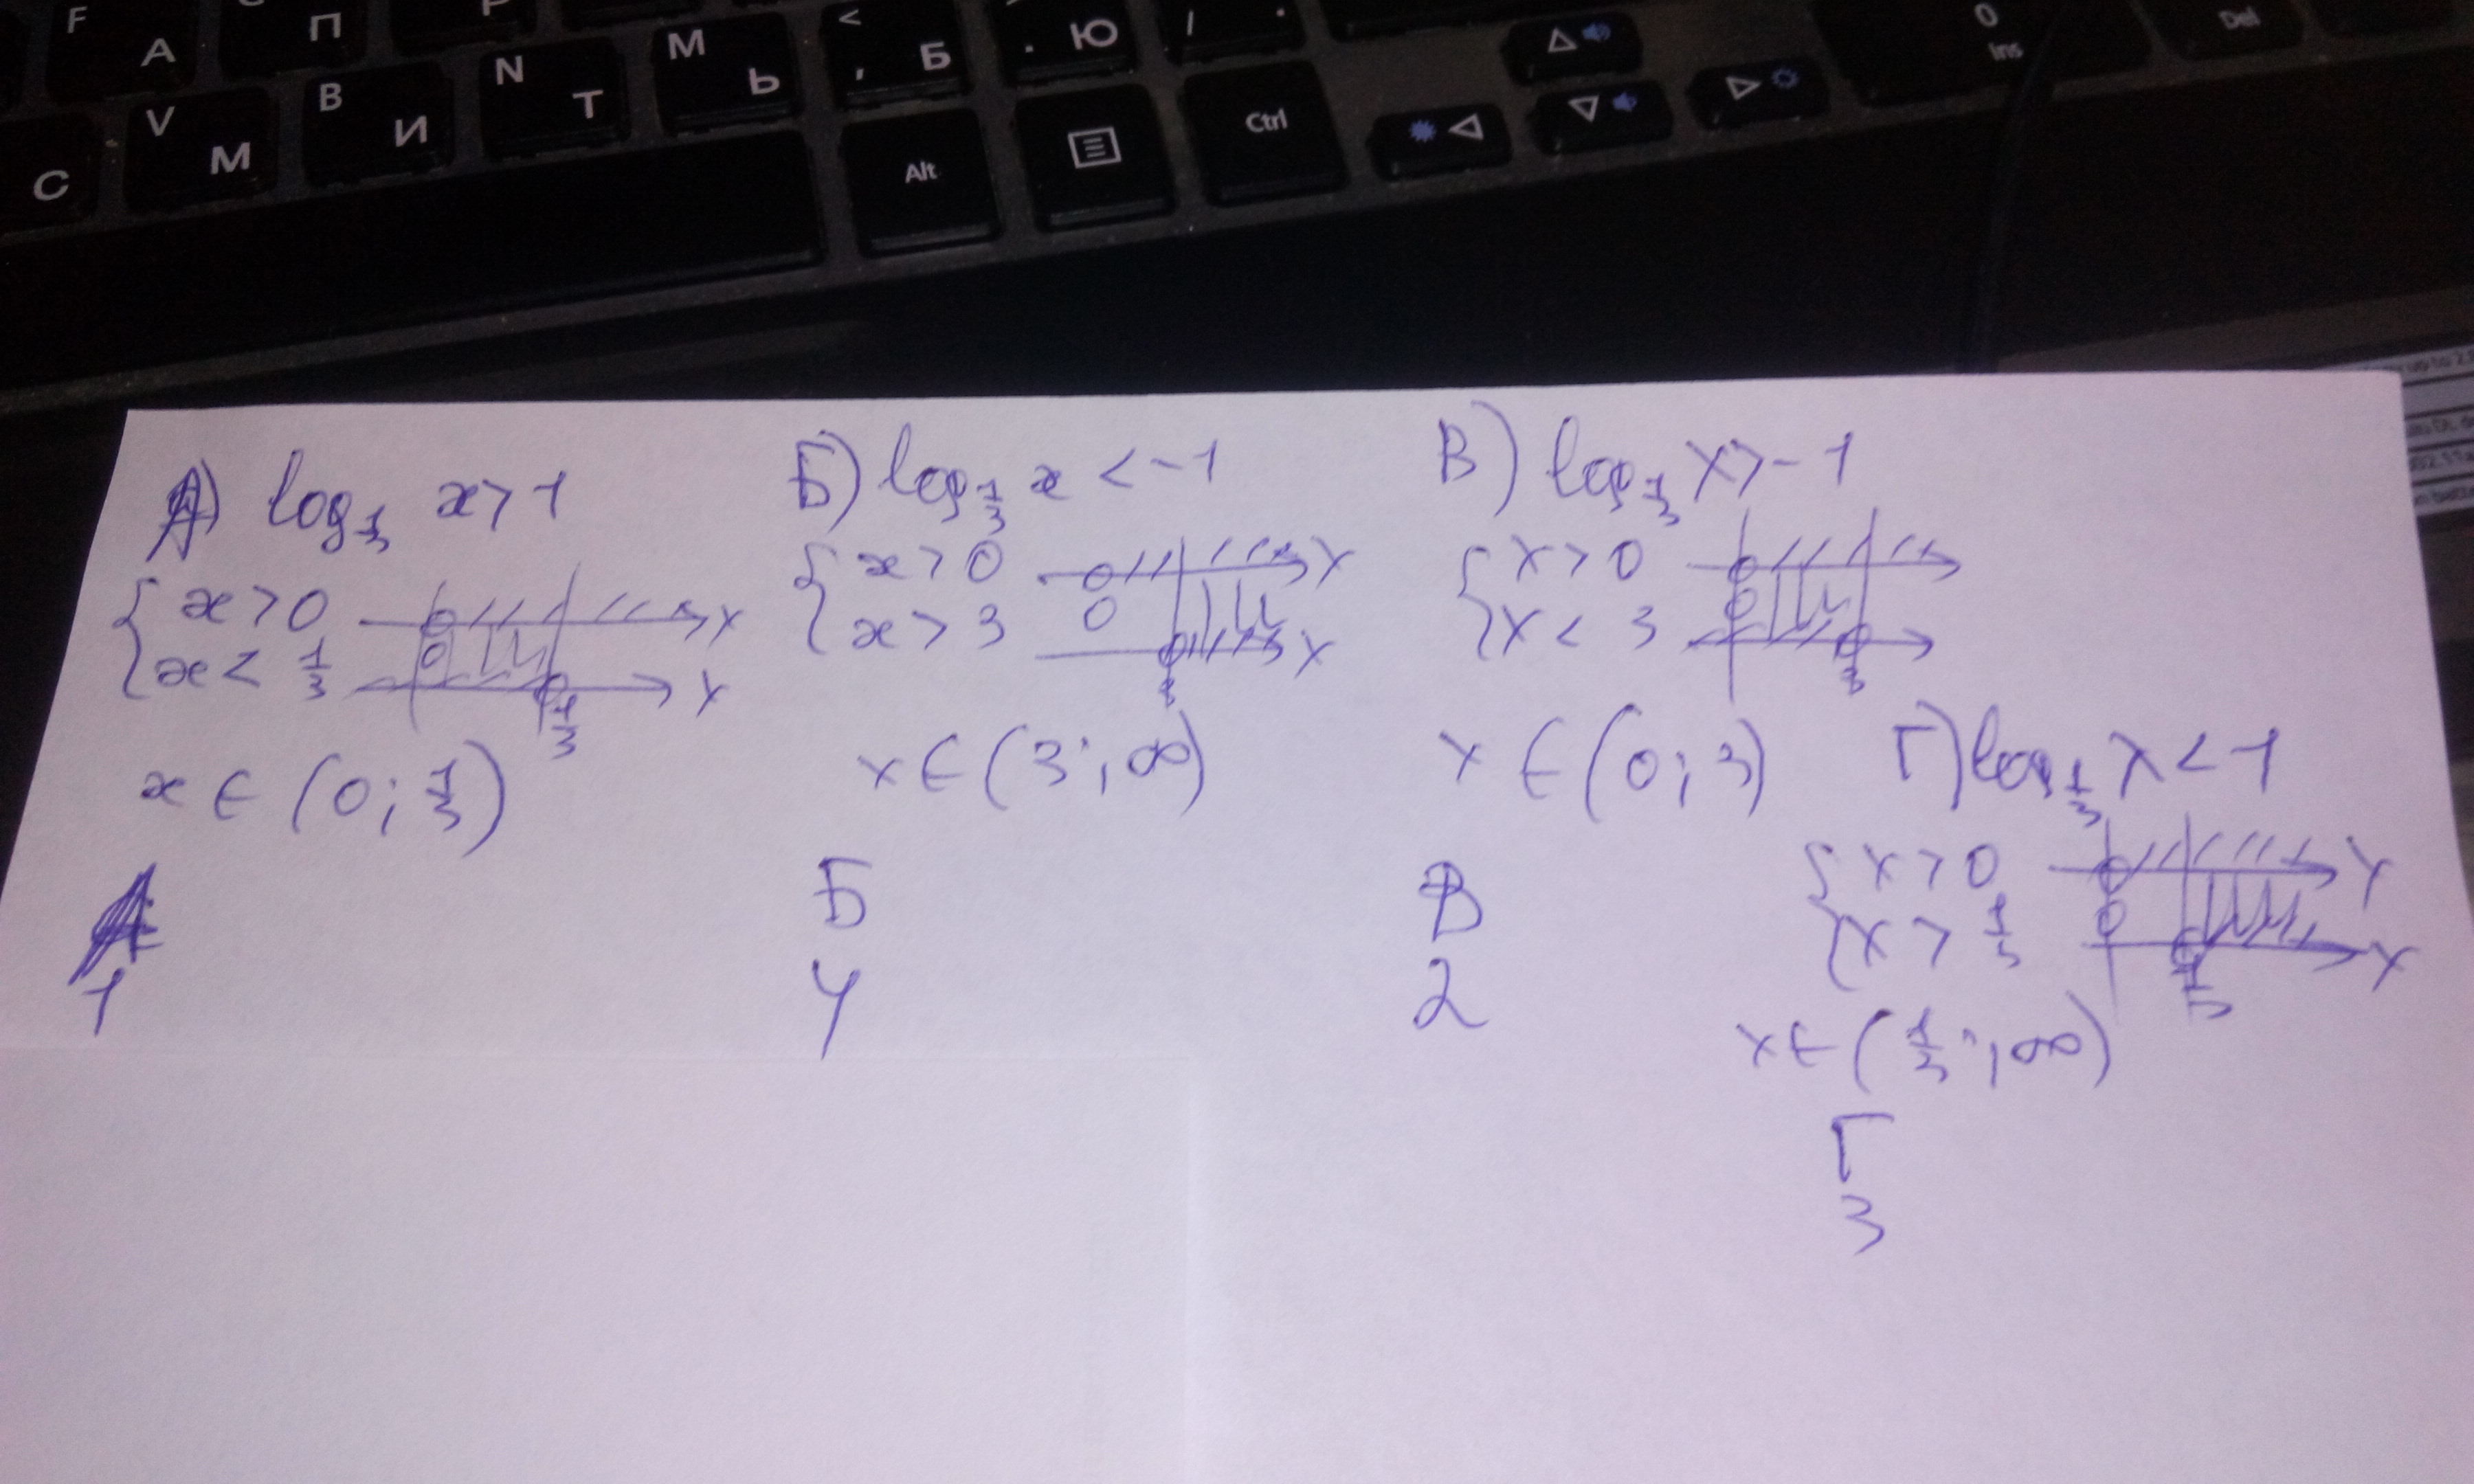 F А П Р
V М B И N Т M Ь < , Б . Ю / .
С Alt Ctrl 0 Ins Del
А) log 1/3 x > 1
{ x > 0
x < 1/3
x x
0 1/3
x ∈ (0; 1/3)
А
1
Б) log 1/3 x < -1
{ x > 0
x > 3
x x
0
x ∈ (3; ∞)
Б
4
В) log 1/3 x > -1
{ x > 0
x < 3
0 3
x ∈ (0; 3)
В
2
Г) log 1/3 x < 1
{ x > 0
x > 1/3
x x
0 1/3
x ∈ (1/3; ∞)
Г
3